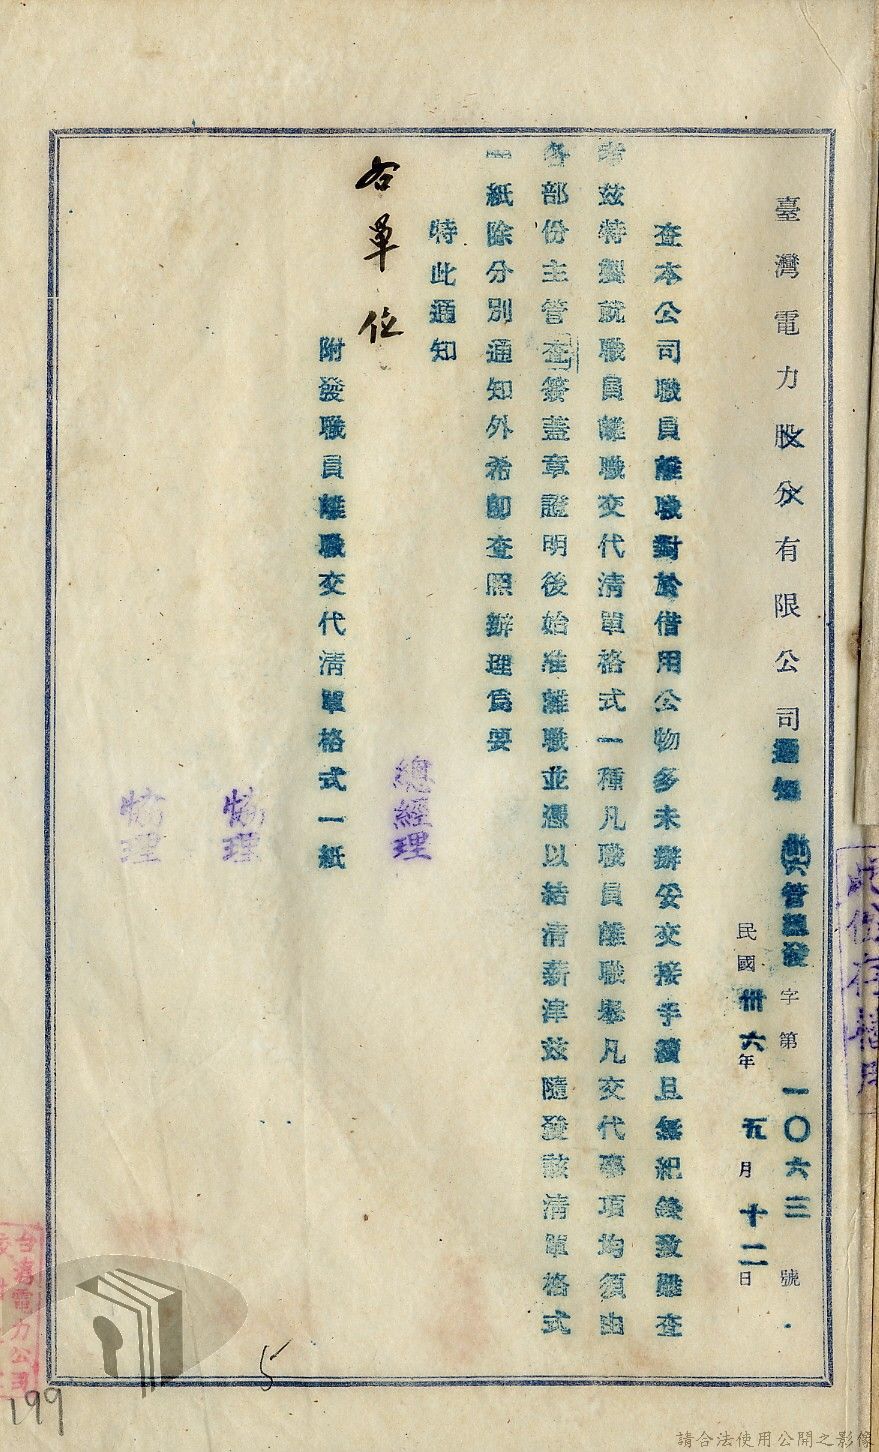 臺灣電力股份有限公司通知 管理發字第一〇六三號
民國卅六年五月十二日
查本公司職員離職對於借用公物多未辦妥交接手續且無紀錄致難查
考茲特製就職員離職交代清單格式一種凡職員離職舉凡交代事項均須由
各部份主管查簽蓋章證明後始准離職並憑以結清薪津茲隨發該清單格式
一紙除分別通知外希即查照辦理為要
特此通知
各單位
總經理
附發職員離職交代清單格式一紙
協理
協理
台灣電力公司
5
199
請合法使用公開之影像